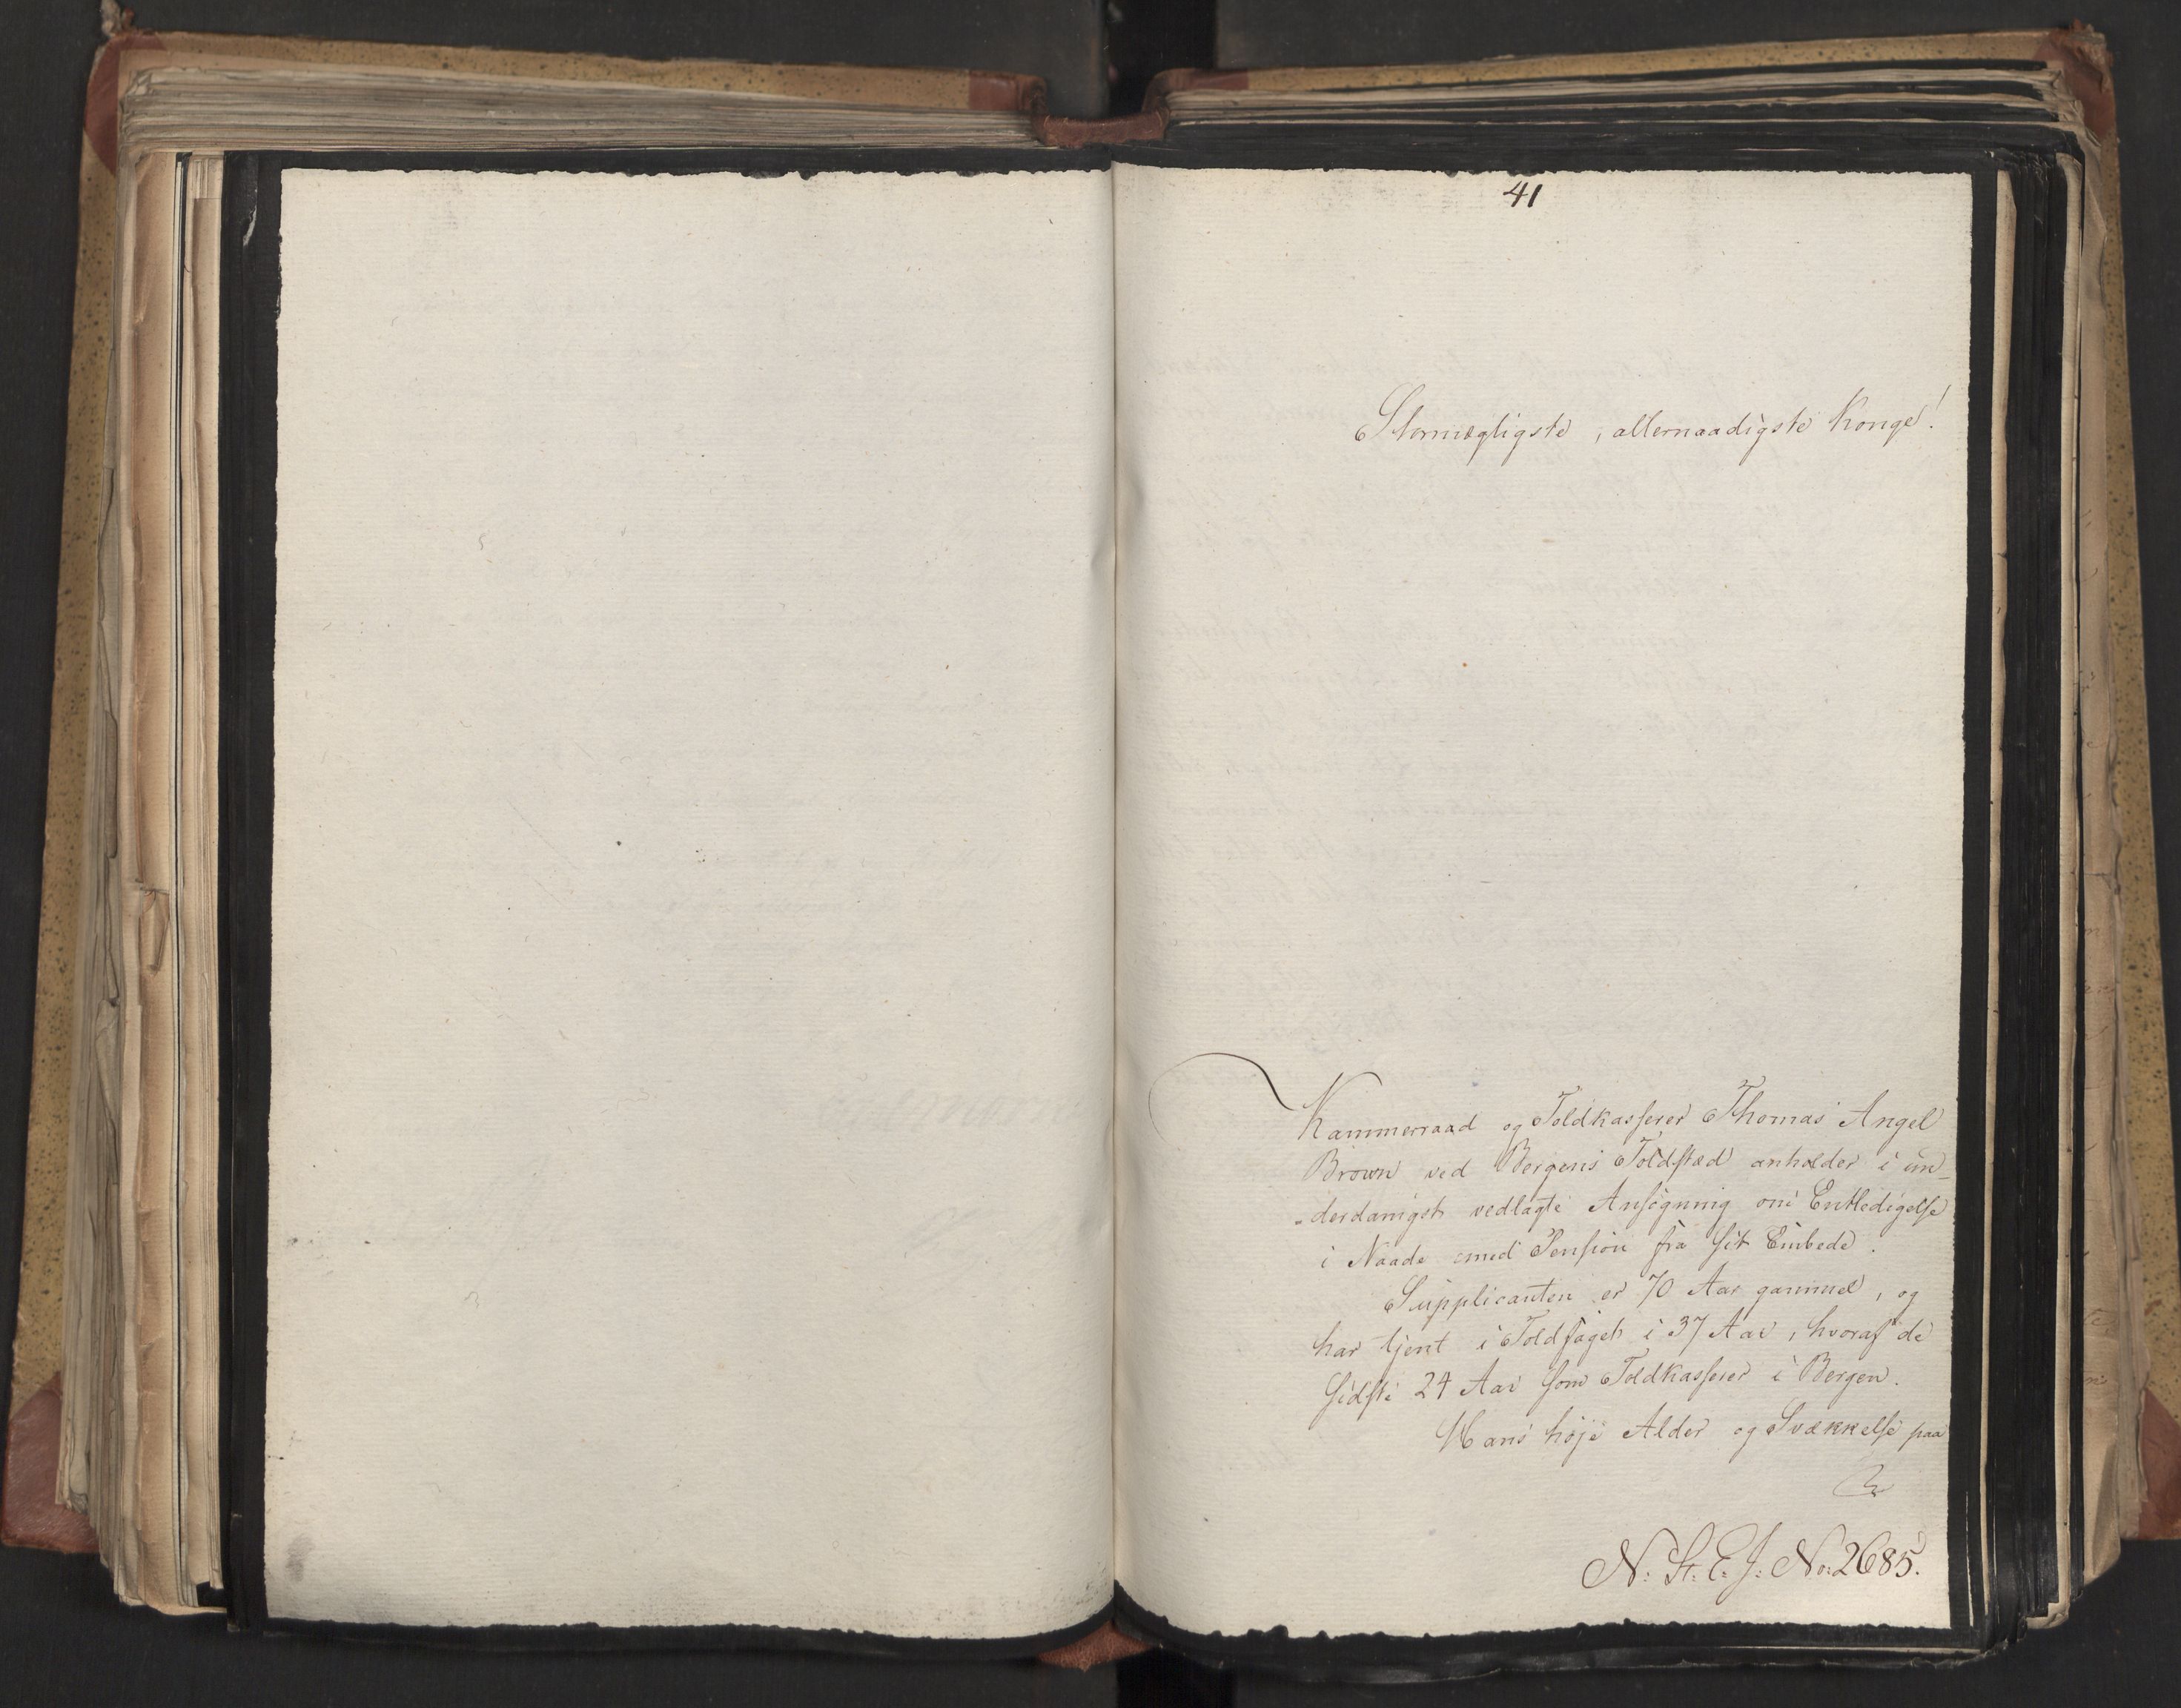 41
Stormægtigste, allernaadigste Konge!
Kammerraad og Toldkasserer Thomas Angel
Brown ved Bergens Toldsted anholder i un-
-derdanigst vedlagte Ansøgning om Entledigelse
i Naade med Pension fra sit Embede.
Supplicanten er 70 Aar gammel, og
har tjent i Toldfaget i 37 Aar, hvoraf de
sidste 24 Aar som Toldkasserer i Bergen.
Hans høje Alder og Svækkelse paa
N: St: E: J: No: 2685.